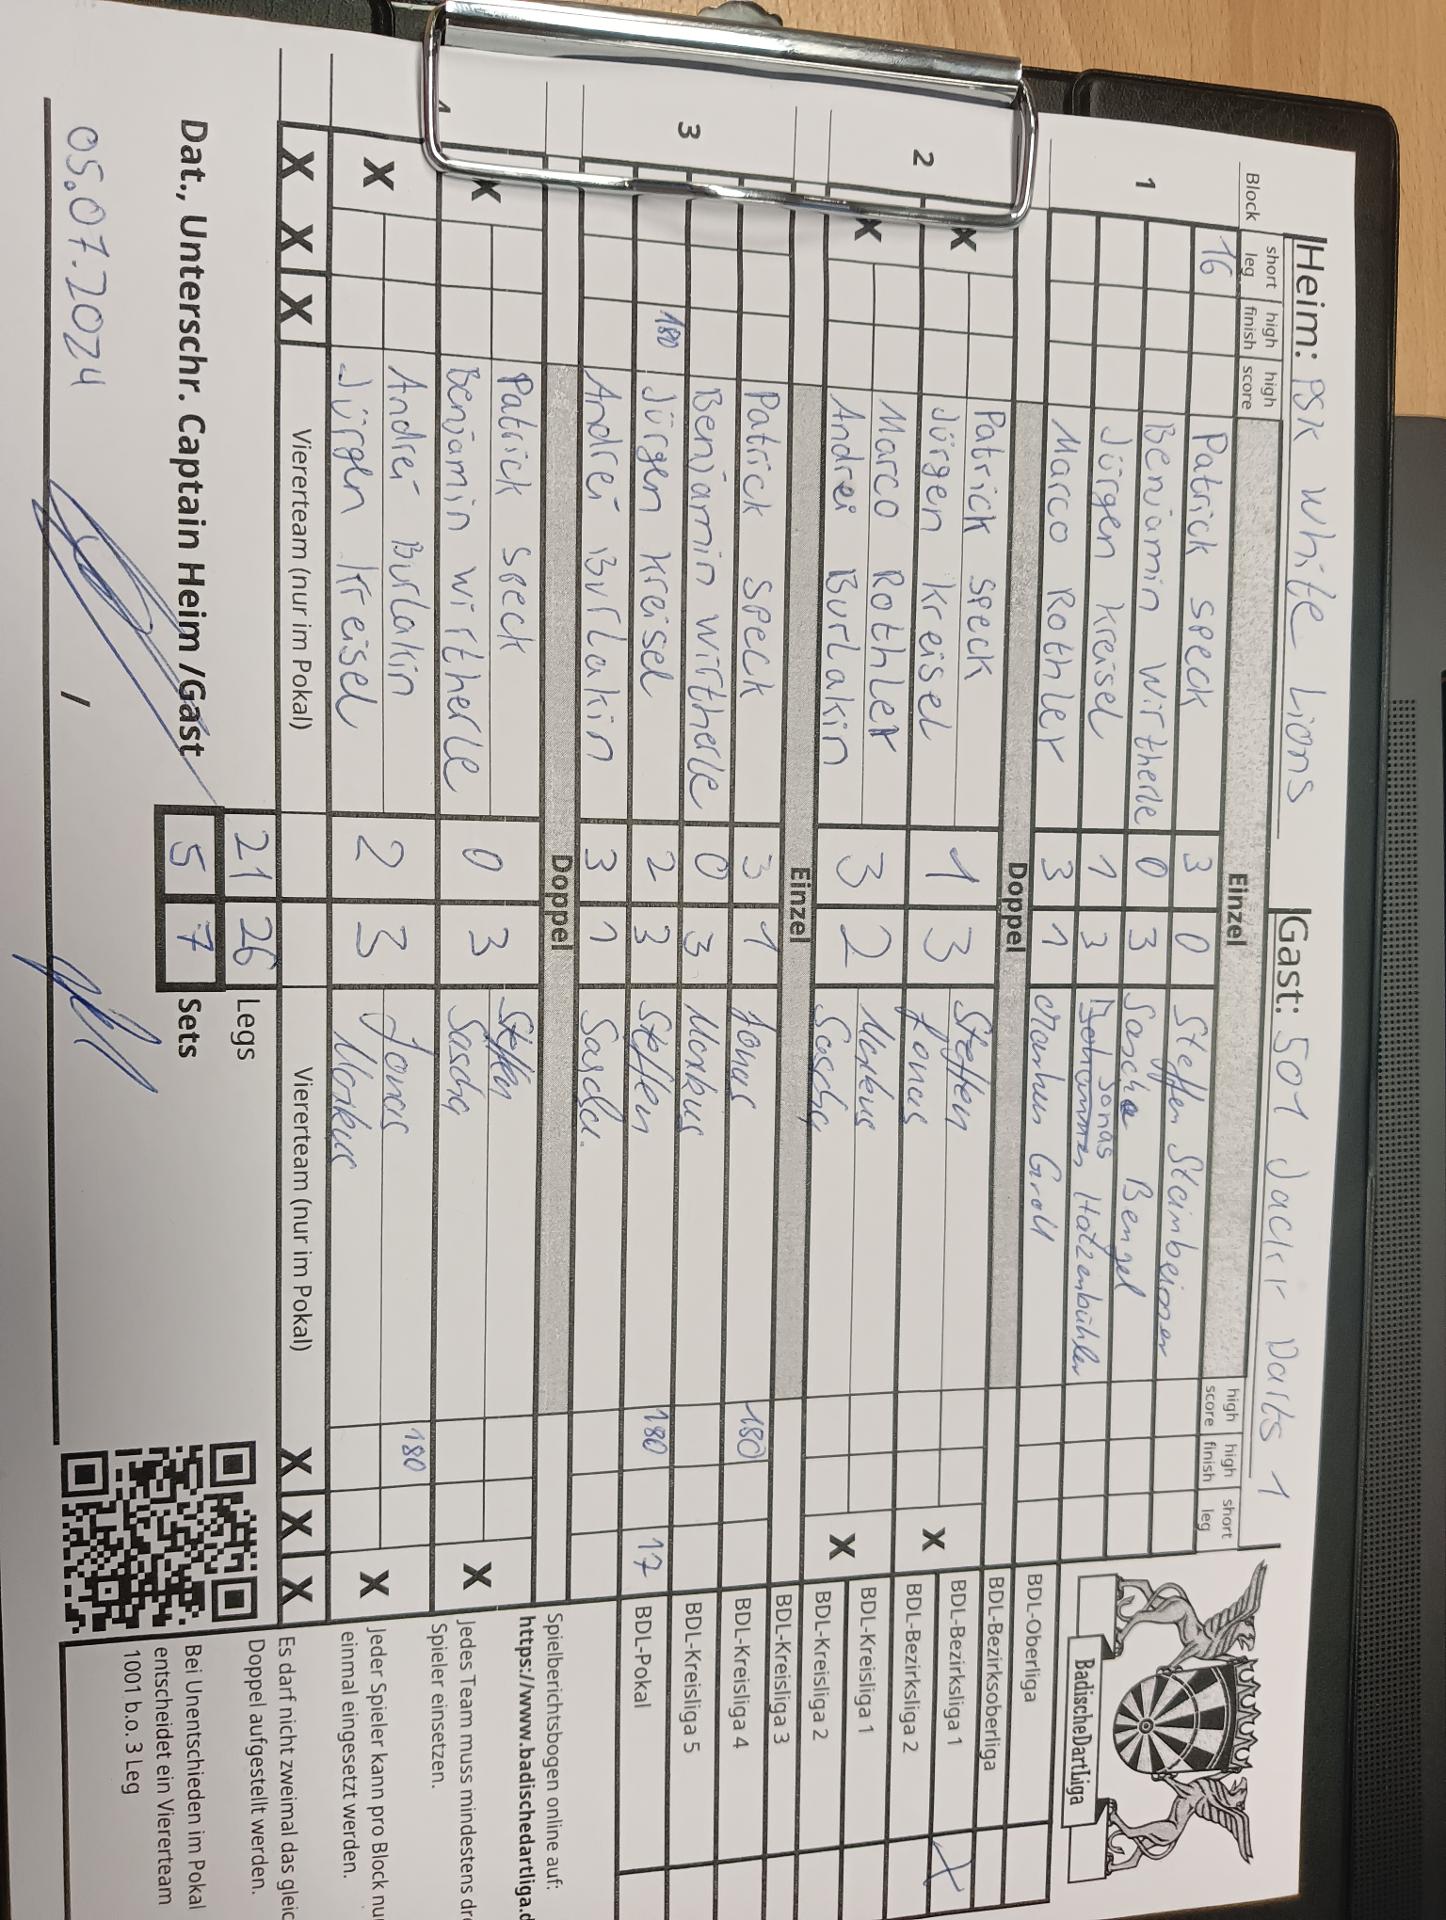 Heim: PSK White Lions Gast: 501 Jackr Darts 1
Block short leg high finish high score Einzel high score high finish short leg
1 16 Patrick Speck 3 0 Steffen Steinbeisser
Benjamin Wirtherle 0 3 Sascha Bengel
Jürgen Kreisel 1 3 Jonas Hatzenbühler
Marco Rothler 3 1 Markus Groll
Doppel
2 X Patrick Speck 1 3 Steffen X
Jürgen Kreisel Jonas
X Marco Rothler 3 2 Markus X
Andrei Burlakin Sascha
Einzel
3 Patrick Speck 3 1 Jonas 180
Benjamin Wirtherle 0 3 Markus
180 Jürgen Kreisel 2 3 Steffen 180 17
Andrei Burlakin 3 1 Sascha
Doppel
4 X Patrick Speck 0 3 Steffen X
Benjamin Wirtherle Sascha
X Andrei Burlakin 2 3 Jonas 180 X
Jürgen Kreisel Markus
X X X Viererteam (nur im Pokal) Viererteam (nur im Pokal) X X X
21 26 Legs
Dat., Unterschr. Captain Heim /Gast 5 7 Sets
05.07.2024 /
BadischeDartLiga
BDL-Oberliga
BDL-Bezirksoberliga
BDL-Bezirksliga 1 X
BDL-Bezirksliga 2
BDL-Kreisliga 1
BDL-Kreisliga 2
BDL-Kreisliga 3
BDL-Kreisliga 4
BDL-Kreisliga 5
BDL-Pokal
Spielberichtsbogen online auf:
https://www.badischedartliga.d
Jedes Team muss mindestens dre
Spieler einsetzen.
Jeder Spieler kann pro Block nu
einmal eingesetzt werden.
Es darf nicht zweimal das gleic
Doppel aufgestellt werden.
Bei Unentschieden im Pokal
entscheidet ein Viererteam
1001 b.o. 3 Leg